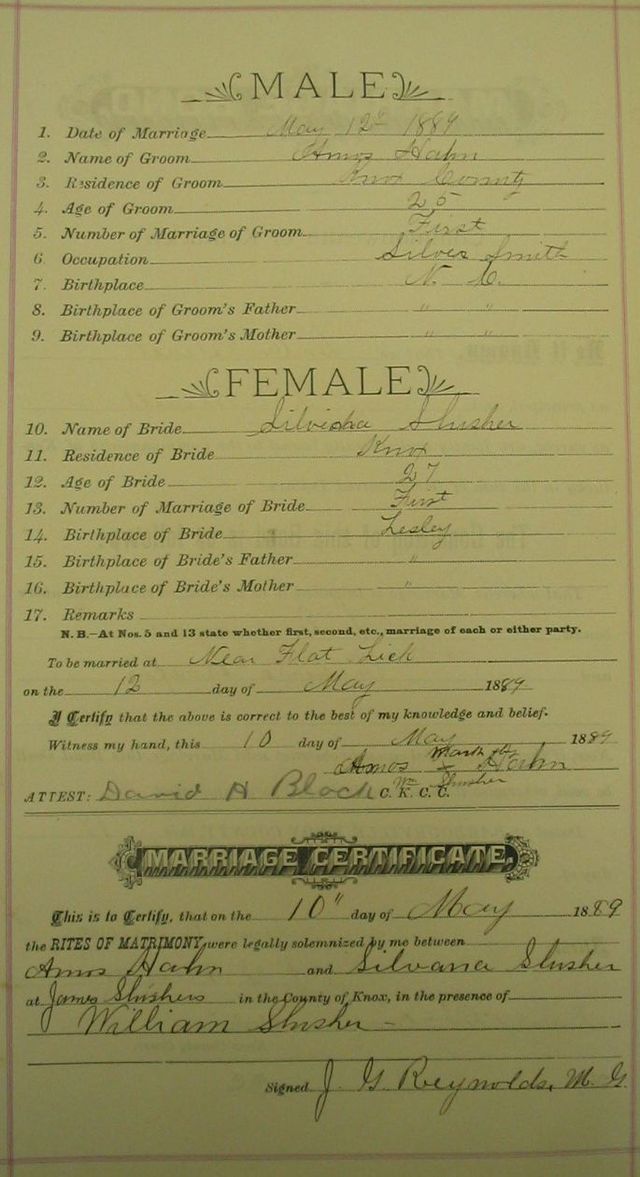 MALE
1. Date of Marriage May 12" 1889
2. Name of Groom Amos Hahn
3. Residence of Groom Knox County
4. Age of Groom 25
5. Number of Marriage of Groom First
6. Occupation Silver Smith
7. Birthplace N. C.
8. Birthplace of Groom's Father " "
9. Birthplace of Groom's Mother " "
FEMALE
10. Name of Bride Slusher
11. Residence of Bride Knox
12. Age of Bride 27
13. Number of Marriage of Bride First
14. Birthplace of Bride Lesley
15. Birthplace of Bride's Father "
16. Birthplace of Bride's Mother "
17. Remarks
N. B.—At Nos. 5 and 13 state whether first, second, etc., marriage of each or either party.
To be married at Near Flat Lick
on the 12 day of May 1889
I Certify that the above is correct to the best of my knowledge and belief.
Witness my hand, this 10 day of May 1889
Amos X Hahn
Wm Slusher
ATTEST: David H Black C. K. C. C.
MARRIAGE CERTIFICATE.
This is to Certify, that on the 10" day of May 1889
the RITES OF MATRIMONY were legally solemnized by me between
Amos Hahn and Silvana Slusher
at James Slushers in the County of Knox, in the presence of
William Slusher
Signed J. G. Reynolds, M. G.